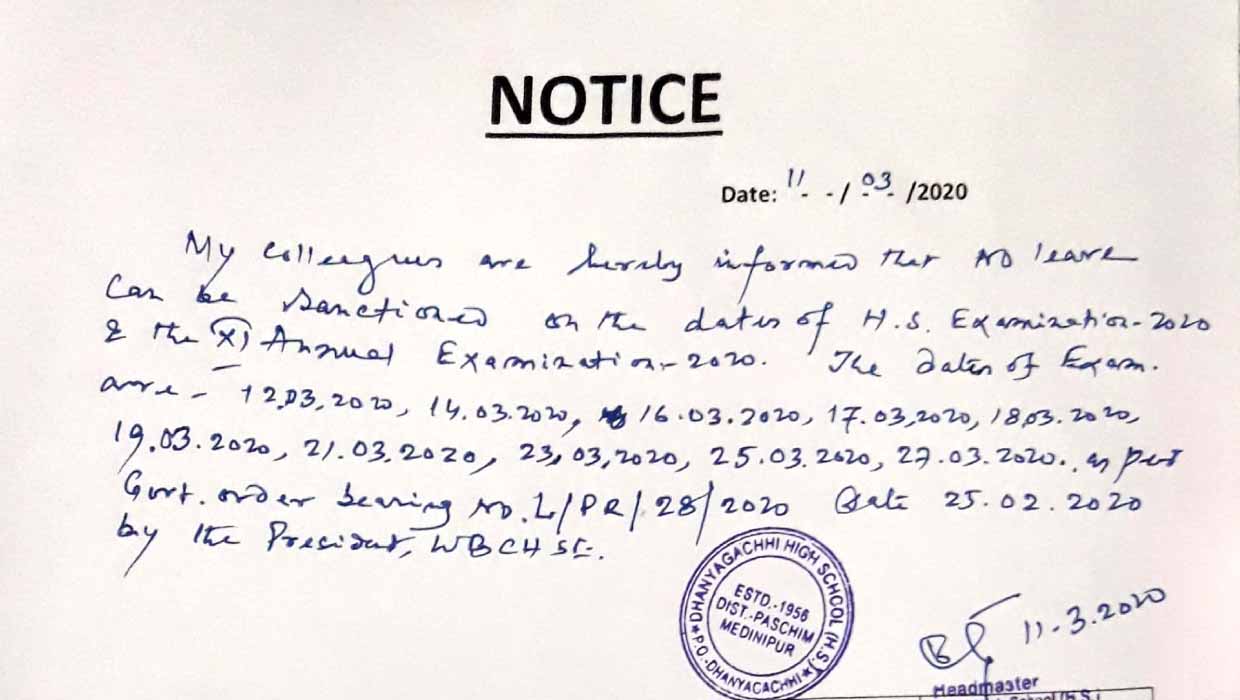 NOTICE
Date: 11 / 03 /2020
My colleagues are hereby informed that no leave
can be sanctioned on the dates of H.S. Examination-2020
& the XI Annual Examination-2020. The dates of Exam.
are - 12.03.2020, 14.03.2020, 16.03.2020, 17.03.2020, 18.03.2020,
19.03.2020, 21.03.2020, 23.03.2020, 25.03.2020, 27.03.2020. as per
Govt. order bearing no. L/PR/28/2020 Date 25.02.2020
by the President, WBCHSE.
DHANYAGACHHI HIGH SCHOOL (H.S.)
P.O-DHANYAGACHHI
ESTD.-1956
DIST.-PASCHIM
MEDINIPUR
11-3.2020
Headmaster
School (H.S.)